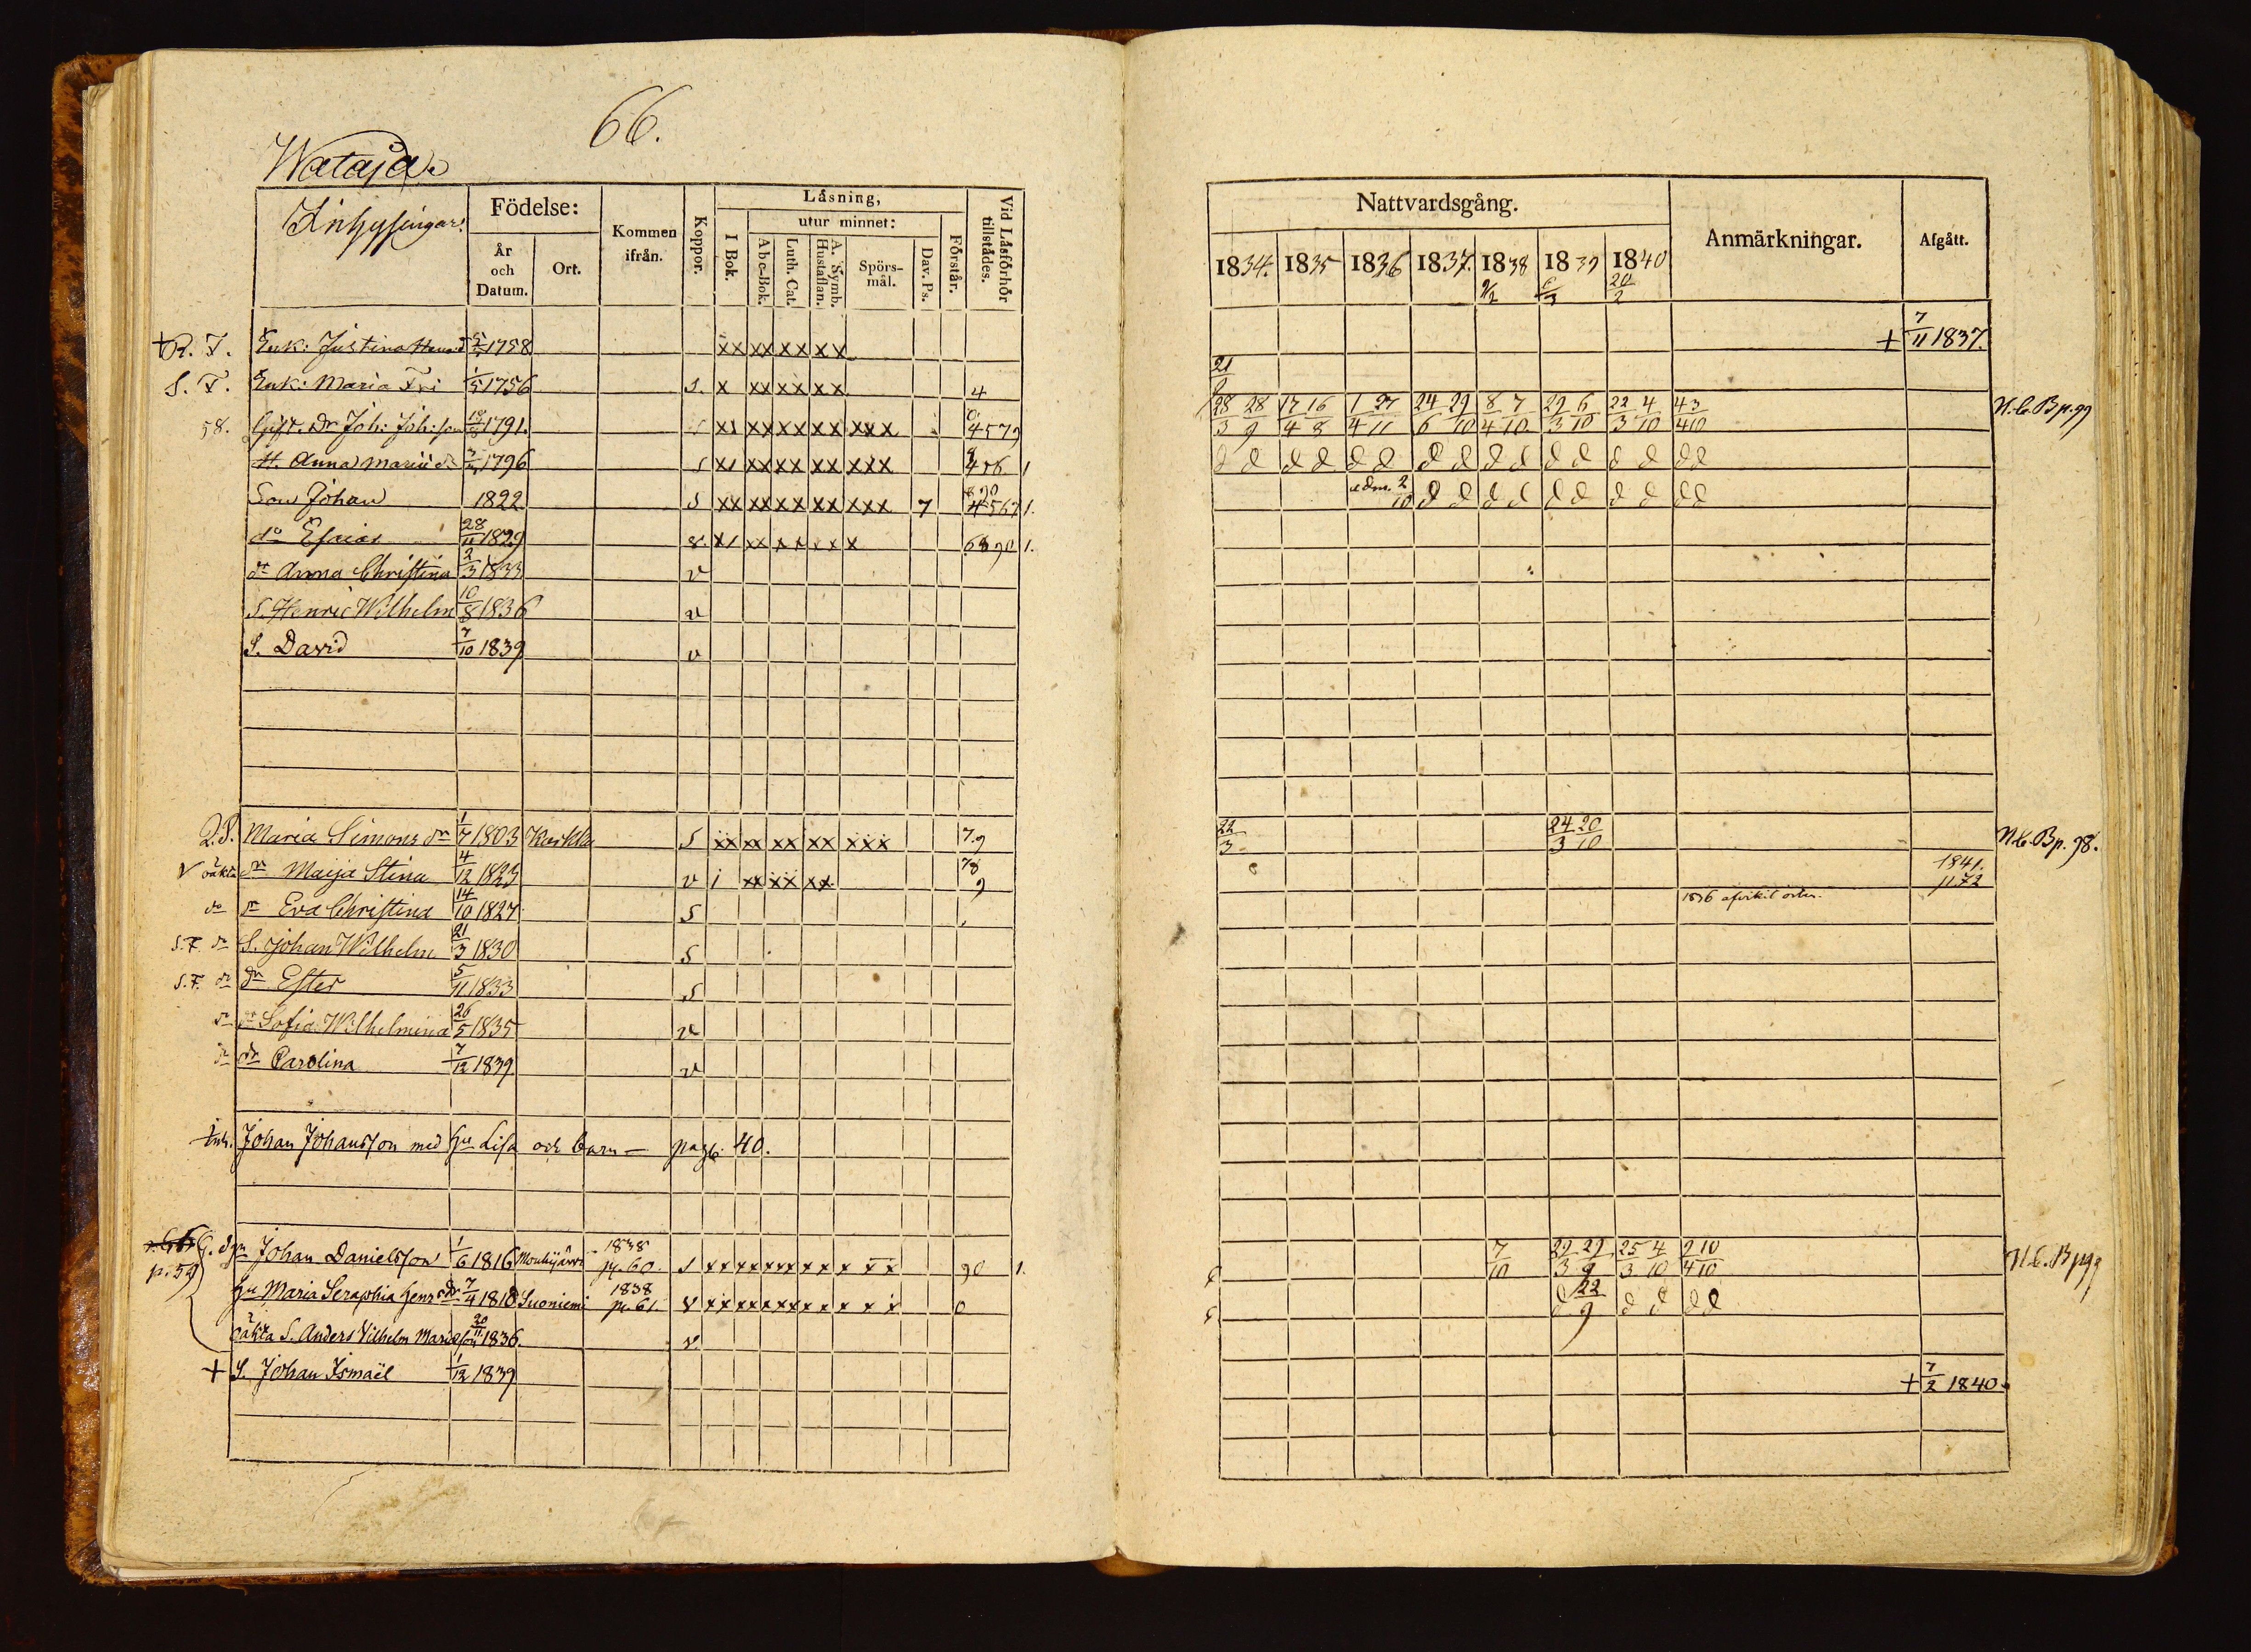 66.
Wataja.
Inhysingar.
Födelse:
År och Datum.
Ort.
Kommen ifrån.
Koppor.
Läsning,
I Bok.
utur minnet:
Abc-Bok.
Luth. Cat.
A. Symb. Hustaflan.
Spörs-mål.
Dav. Ps.
Förstår.
Vid Läsförhör tillstädes.
Nattvardsgång.
1834. 1835 1836 1837. 1838 1839 1840
20/2
Anmärkningar.
Afgått.
Enk: Justina 1758 xx xx xx xx + 7/11 1837.
S. F. Enk: Maria 1/5 1756 S. x xx xx xx 4 21
58. Gift. Dr Joh: Joh:son 1791. xx xx xx xxx 4579 28/3 28/9 17/4 16/8 1/4 27/11 24/6 29/10 8/4 7/10 29/3 6/10 22/3 4/10 4/4 3/10 N.C.B p. 99
H. Anna Maria 1796 S xx xx xx xxx 1 d d d d d d d d d d d d d d d d
Son Johan 1822 S xx xx xx xx xxx 7 4567 1. adm. 2/10 d d d d d d d d d d
do Esaias 28/11 1829 xx xx xx x 6890 1.
dr Anna Christina 2/3 1833 v
S. Henric Wilhelm 10/8 1836 v
S. David 7/10 1839 v
Maria Simons dr 1/7 1803 S xx xx xx xx xxx 7.9 22/3 24/3 20/10 N.C.B p. 98.
oäkta dr Maija Stina 4/12 1823 v i xx xx xx 78 9 1841.
do dr Eva Christina 14/10 1827 S 1836
S.F. do S. Johan Wilhelm 21/3 1830 S
S.F. do dr Ester 5/11 1833 S
do dr Sofia Wilhelmina 26/5 1835 v
do dr Carolina 7/12 1839 v
Inh. Johan Johansson med hu Lisa och barn — pag. 40.
p. 59 Johan Danielsson 1/6 1816 Mouhijärvi 1838 p. 60. S xx xx xx xx x xx 90 1. 7/10 29/3 29/9 25/3 4/10 9/4 10/10 N.C.B p 99
hu Maria Seraphia Henr dr 7/4 1818 Suoniemi 1838 p. 61. v xx xx xx xx x x x 0 d 22/9 d d d d
oäkta S. Anders Vilhelm Mariæson 20/11 1836. v.
+ S. Johan Ismaël 1/12 1839 + 7/2 1840.